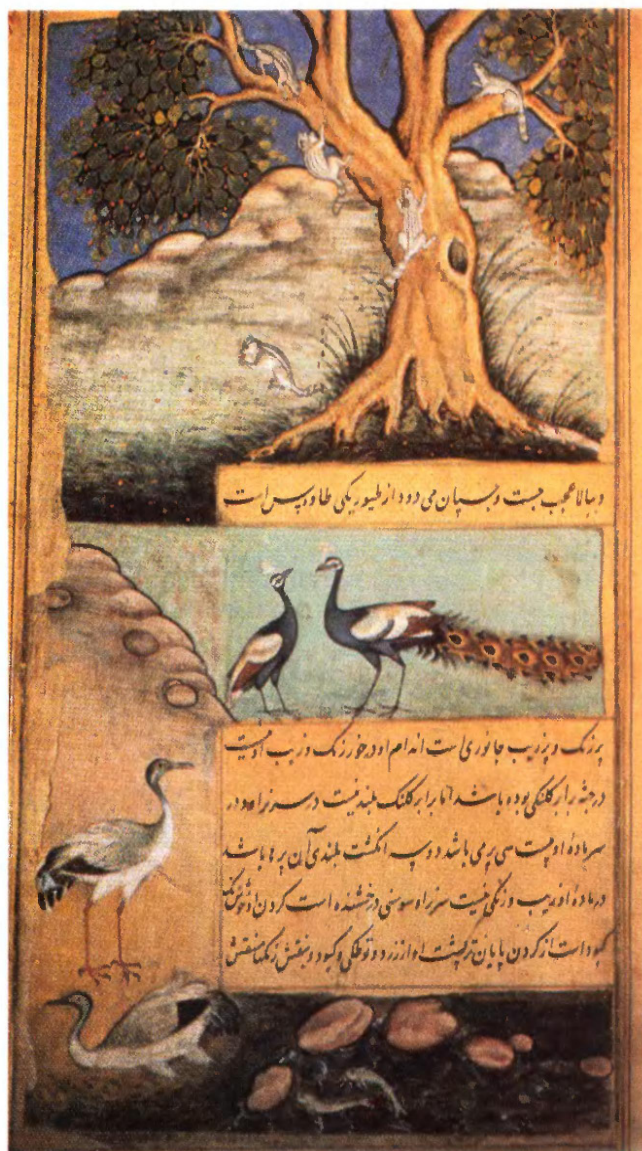 و ببالا عجب جست و چسپان می دود از طیور یکی طاوس است
پر رنگ و پر زیب جانوری است اندام او در خور رنگ و زیب او نیست
در جثه برابر کلنگی بوده باشد اما برابر کلنگ بلند نیست در سر نر او و در
سر ماده او بیست سی پر می باشد دو سه انگشت بلندی آن پرها باشد
در ماده او زیب و رنگی نیست سر نر او سوسنی درخشنده است گردن او خوش
کبود است از گردن پایان تر پشت او از زرد و طوطکی و کبود و بنفش رنگها منقش